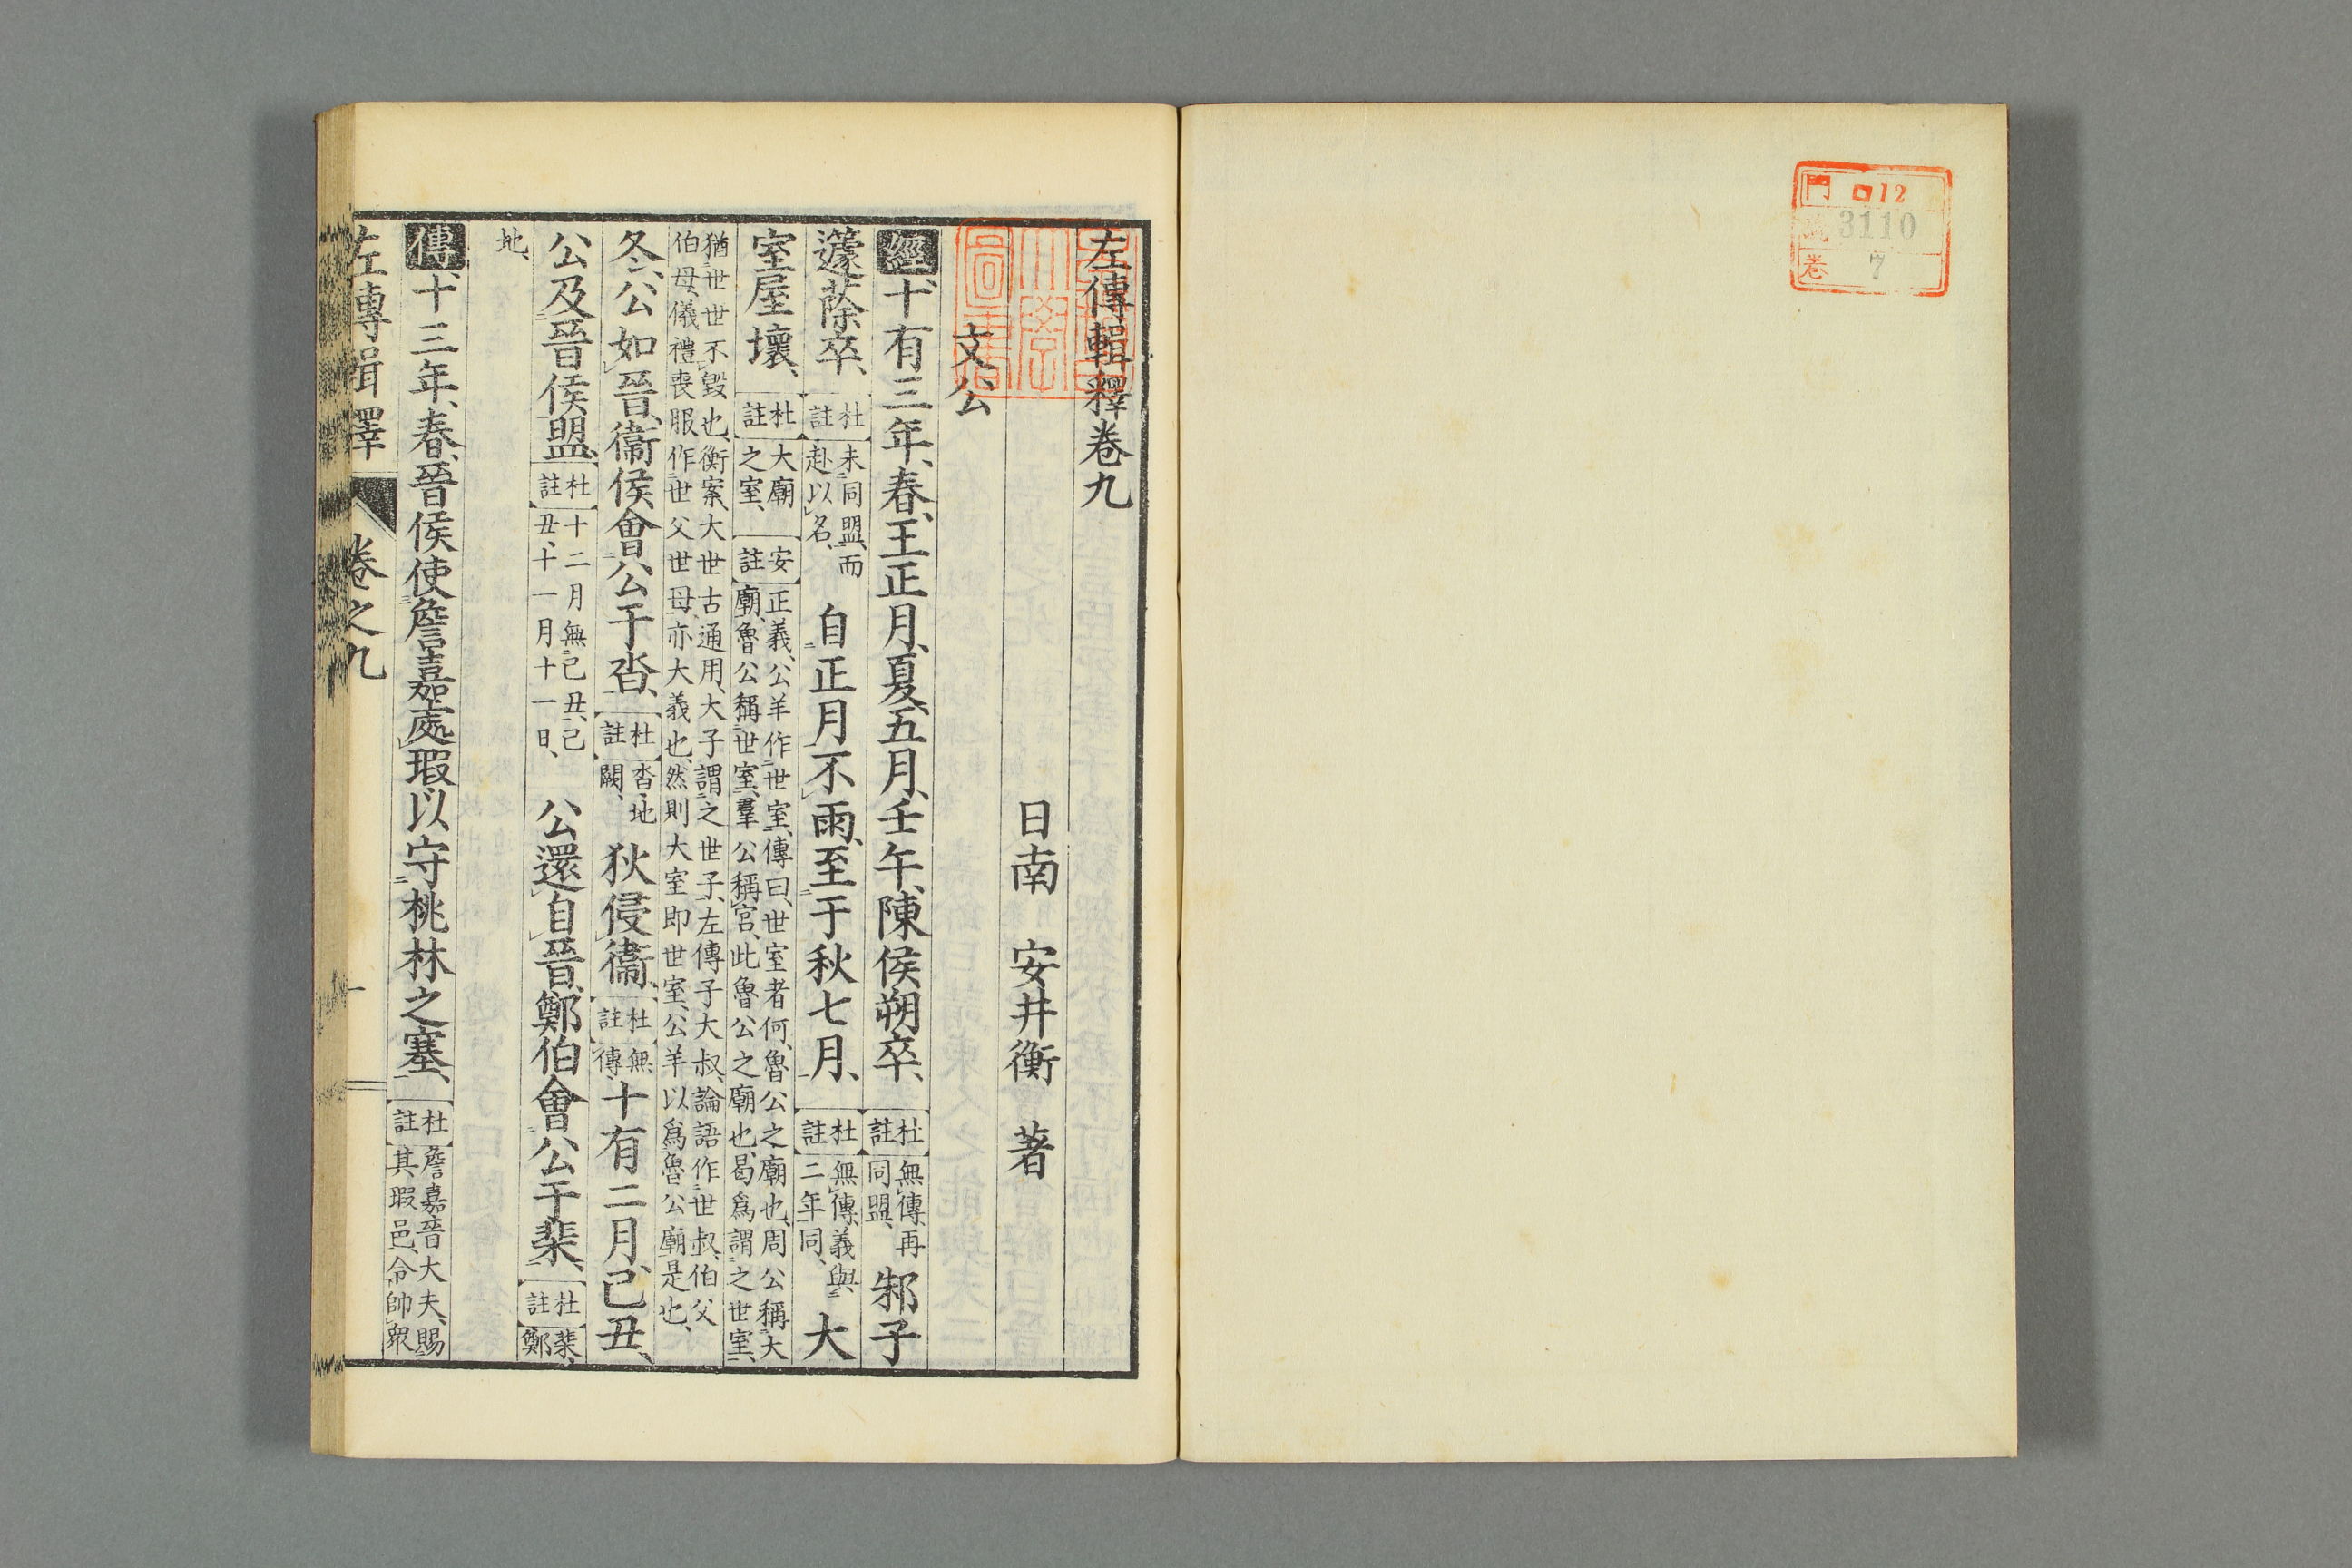 門 ロ12
號 3110
卷 7
左傳輯釋卷九
日南 安井衡 著
文公
經十有三年、春、王正月、夏、五月、壬午、陳侯朔卒、杜註無傳、再同盟、邾子
蘧蒢卒、杜註未同盟、而赴以名、自正月不雨、至于秋七月、杜註無傳、義與二年同、大
室屋壞、杜註大廟之室、安註正義、公羊作世室、傳曰、世室者何、魯公之廟也、周公稱大廟、魯公稱世室、羣公稱宮、此魯公之廟也、曷爲謂之世室、
猶世世不毀也、衡案、大世古通用、大子謂之世子、左傳子大叔、論語作世叔、伯父伯母、儀禮喪服作世父世母、亦大義也、然則大室即世室、公羊以爲魯公廟是也、
冬、公如晉、衞侯會公于沓、杜註沓、地闕、狄侵衞、杜註無傳、十有二月、己丑、
公及晉侯盟、杜註十二月無己丑、己丑、十一月十一日、公還自晉、鄭伯會公于棐、杜註棐、鄭
地、
傳、十三年、春、晉侯使詹嘉處瑕、以守桃林之塞、杜註詹嘉晉大夫、賜其瑕邑、令帥衆
左傳輯釋 卷之九 一